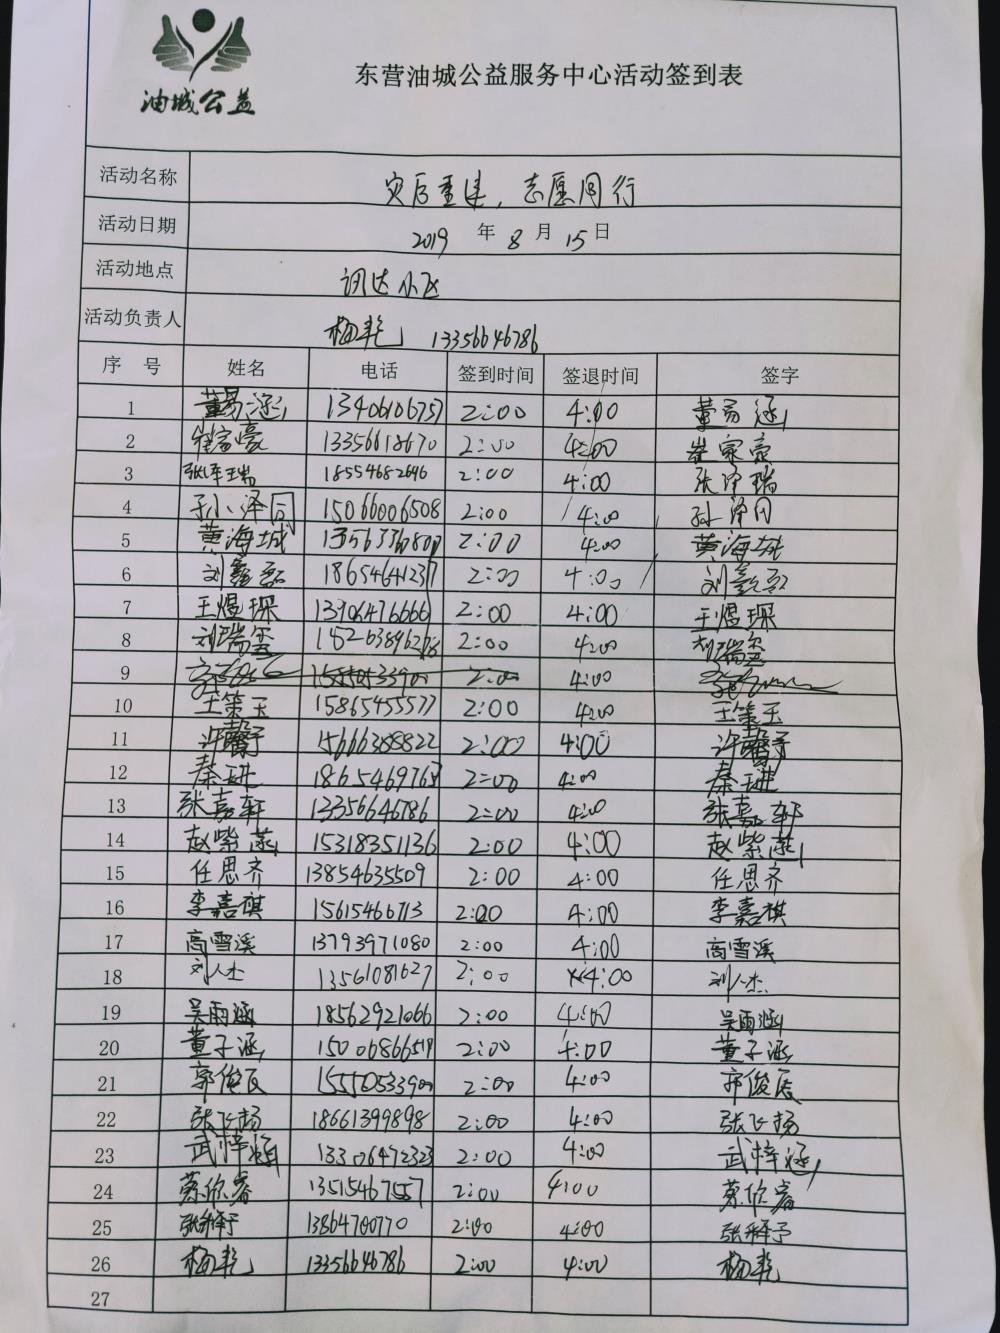 油城公益
东营油城公益服务中心活动签到表
活动名称 灾后重建，志愿同行
活动日期 2019 年 8 月 15 日
活动地点 讯达小区
活动负责人 梅艳 13356646786
序 号 姓名 电话 签到时间 签退时间 签字
1 董易涵 13406106757 2:00 4:00 董易涵
2 崔家豪 13356618670 2:00 4:00 崔家豪
3 张泽瑞 18554682696 2:00 4:00 张泽瑞
4 孙小泽同 15066006508 2:00 4:00 孙泽同
5 黄海城 2:00 4:00 黄海城
6 刘鑫磊 18654641237 2:00 4:00 刘鑫磊
7 王煜琛 13906476666 2:00 4:00 王煜琛
8 刘瑞玺 2:00 4:00 刘瑞玺
9 15550533900 2:00 4:00
10 王策玉 15865455577 2:00 4:00 王策玉
11 许馨予 15666388822 2:00 4:00 许馨予
12 秦琎 18654697 2:00 4:00 秦琎
13 张嘉轩 13356646786 2:00 4:00 张嘉轩
14 赵紫涵 15318351136 2:00 4:00 赵紫涵
15 任思齐 13854635509 2:00 4:00 任思齐
16 李嘉祺 15615466713 2:00 4:00 李嘉祺
17 高雪溪 13793971080 2:00 4:00 高雪溪
18 刘人杰 13561081627 2:00 4:00 刘人杰
19 吴雨涵 18562921066 2:00 4:00 吴雨涵
20 董子涵 15006866519 2:00 4:00 董子涵
21 郭俊辰 15550533900 2:00 4:00 郭俊辰
22 张飞扬 18661399898 2:00 4:00 张飞扬
23 武梓涵 13306472323 2:00 4:00 武梓涵
24 蔡欣睿 13515467557 2:00 4:00 蔡欣睿
25 张释予 13864700770 2:00 4:00 张释予
26 梅艳 13356646786 2:00 4:00 梅艳
27